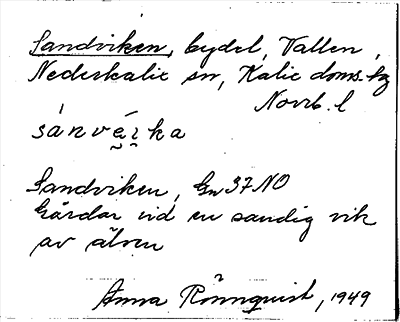 Sandviken, bydel, Vallen,
Nederkalix sn, Kalix doms. sg
Norrb. l
sánvé̬ı̬ka
Sandviken, Gn 37 NO
Gårdar vid en sandig vik
av älven
Anna Rönnquist, 1949